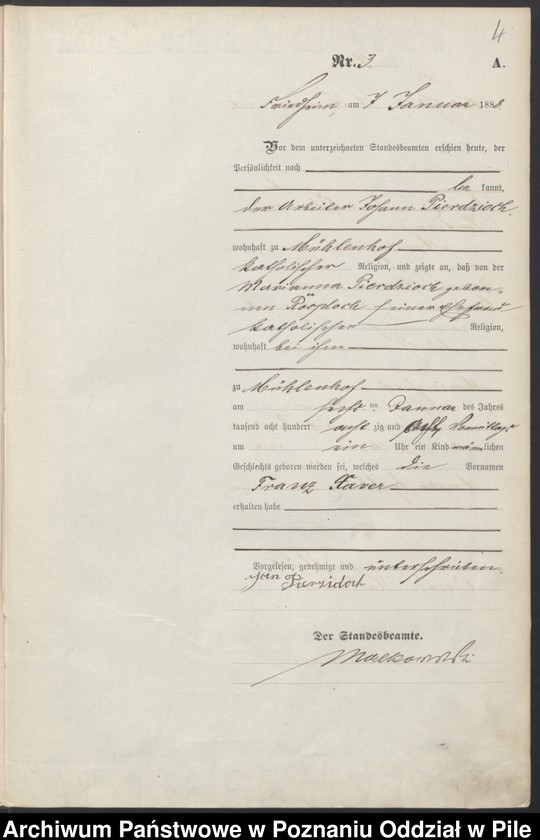 4
Nr. 3. A.
Friedheim, am 7 Januar 1888.
Vor dem unterzeichneten Standesbeamten erschien heute, der
Persönlichkeit nach
be kannt,
der Arbeiter Johann Pierdzioch
wohnhaft zu Mühlenhof
katholischer Religion, und zeigte an, daß von der
Marianna Pierdzioch gebor,
nen seiner Ehefrau
katholischer Religion,
wohnhaft bei ihm
zu Mühlenhof
am sechs ten Januar des Jahres
tausend acht hundert acht zig und acht Vormittags
um ein Uhr ein Kind männlichen
Geschlechts geboren worden sei, welches die Vornamen
Franz Xaver
erhalten habe
Vorgelesen, genehmigt und unterschrieben.
Jan Pierzidoch
Der Standesbeamte.
Malkowski
Archiwum Państwowe w Poznaniu Oddział w Pile